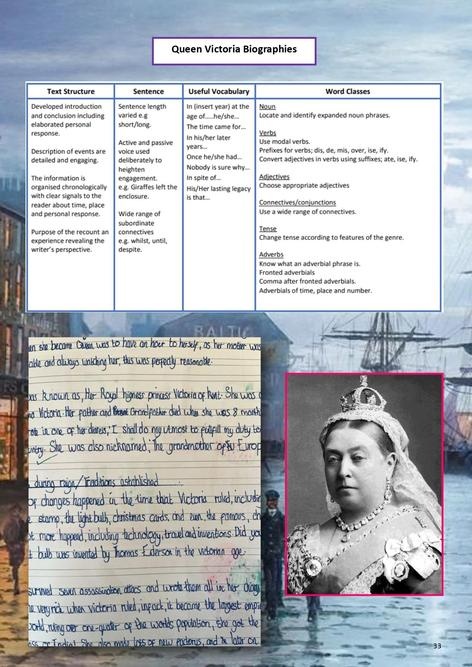 Queen Victoria Biographies
Text Structure
Developed introduction
and conclusion including
elaborated personal
response.
Description of events are
detailed and engaging.
The information is
organised chronologically
with clear signals to the
reader about time, place
and personal response.
Purpose of the recount an
experience revealing the
writer's perspective.
Sentence
Sentence length
varied e.g
short/long.
Active and passive
voice used
deliberately to
heighten
engagement.
e.g. Giraffes left the
enclosure.
Wide range of
subordinate
connectives
e.g. whilst, until,
despite.
Useful Vocabulary
In (insert year) at the
age of.....he/she...
The time came for...
In his/her later
years...
Once he/she had...
Nobody is sure why...
In spite of...
His/Her lasting legacy
is that...
Word Classes
Noun
Locate and identify expanded noun phrases.
Verbs
Use modal verbs.
Prefixes for verbs; dis, de, mis, over, ise, ify.
Convert adjectives in verbs using suffixes; ate, ise, ify.
Adjectives
Choose appropriate adjectives
Connectives/conjunctions
Use a wide range of connectives.
Tense
Change tense according to features of the genre.
Adverbs
Know what an adverbial phrase is.
Fronted adverbials
Comma after fronted adverbials.
Adverbials of time, place and number.
BALTIC
en she became Queen was to have an hour to herself, as her mother was
and always watching her, this was perfectly reasonable.
known as, Her Royal highness princess Victoria of Kent. She was
Victoria. Her father and Grandfather died when she was 8 month
in one of her diaries, 'I shall do my utmost to fulfill my duty to
She was also nicknamed, 'The grandmother of Europ
during reign/Traditions established
of changes happened in the time that Victoria ruled, includin
stamp, the light bulb, christmas cards, and even, the famous, ch
more happend, including technology, travel and inventions. Did you
bulb was invented by Thomas Ederson in the victorian age.
seven assassination attacs and wrote them all in her
very rich when victoria ruled, infact, it became the largest empir
world, ruling over one-quater of the worlds population, she got the
of India! She also made lots of new and in later on
33